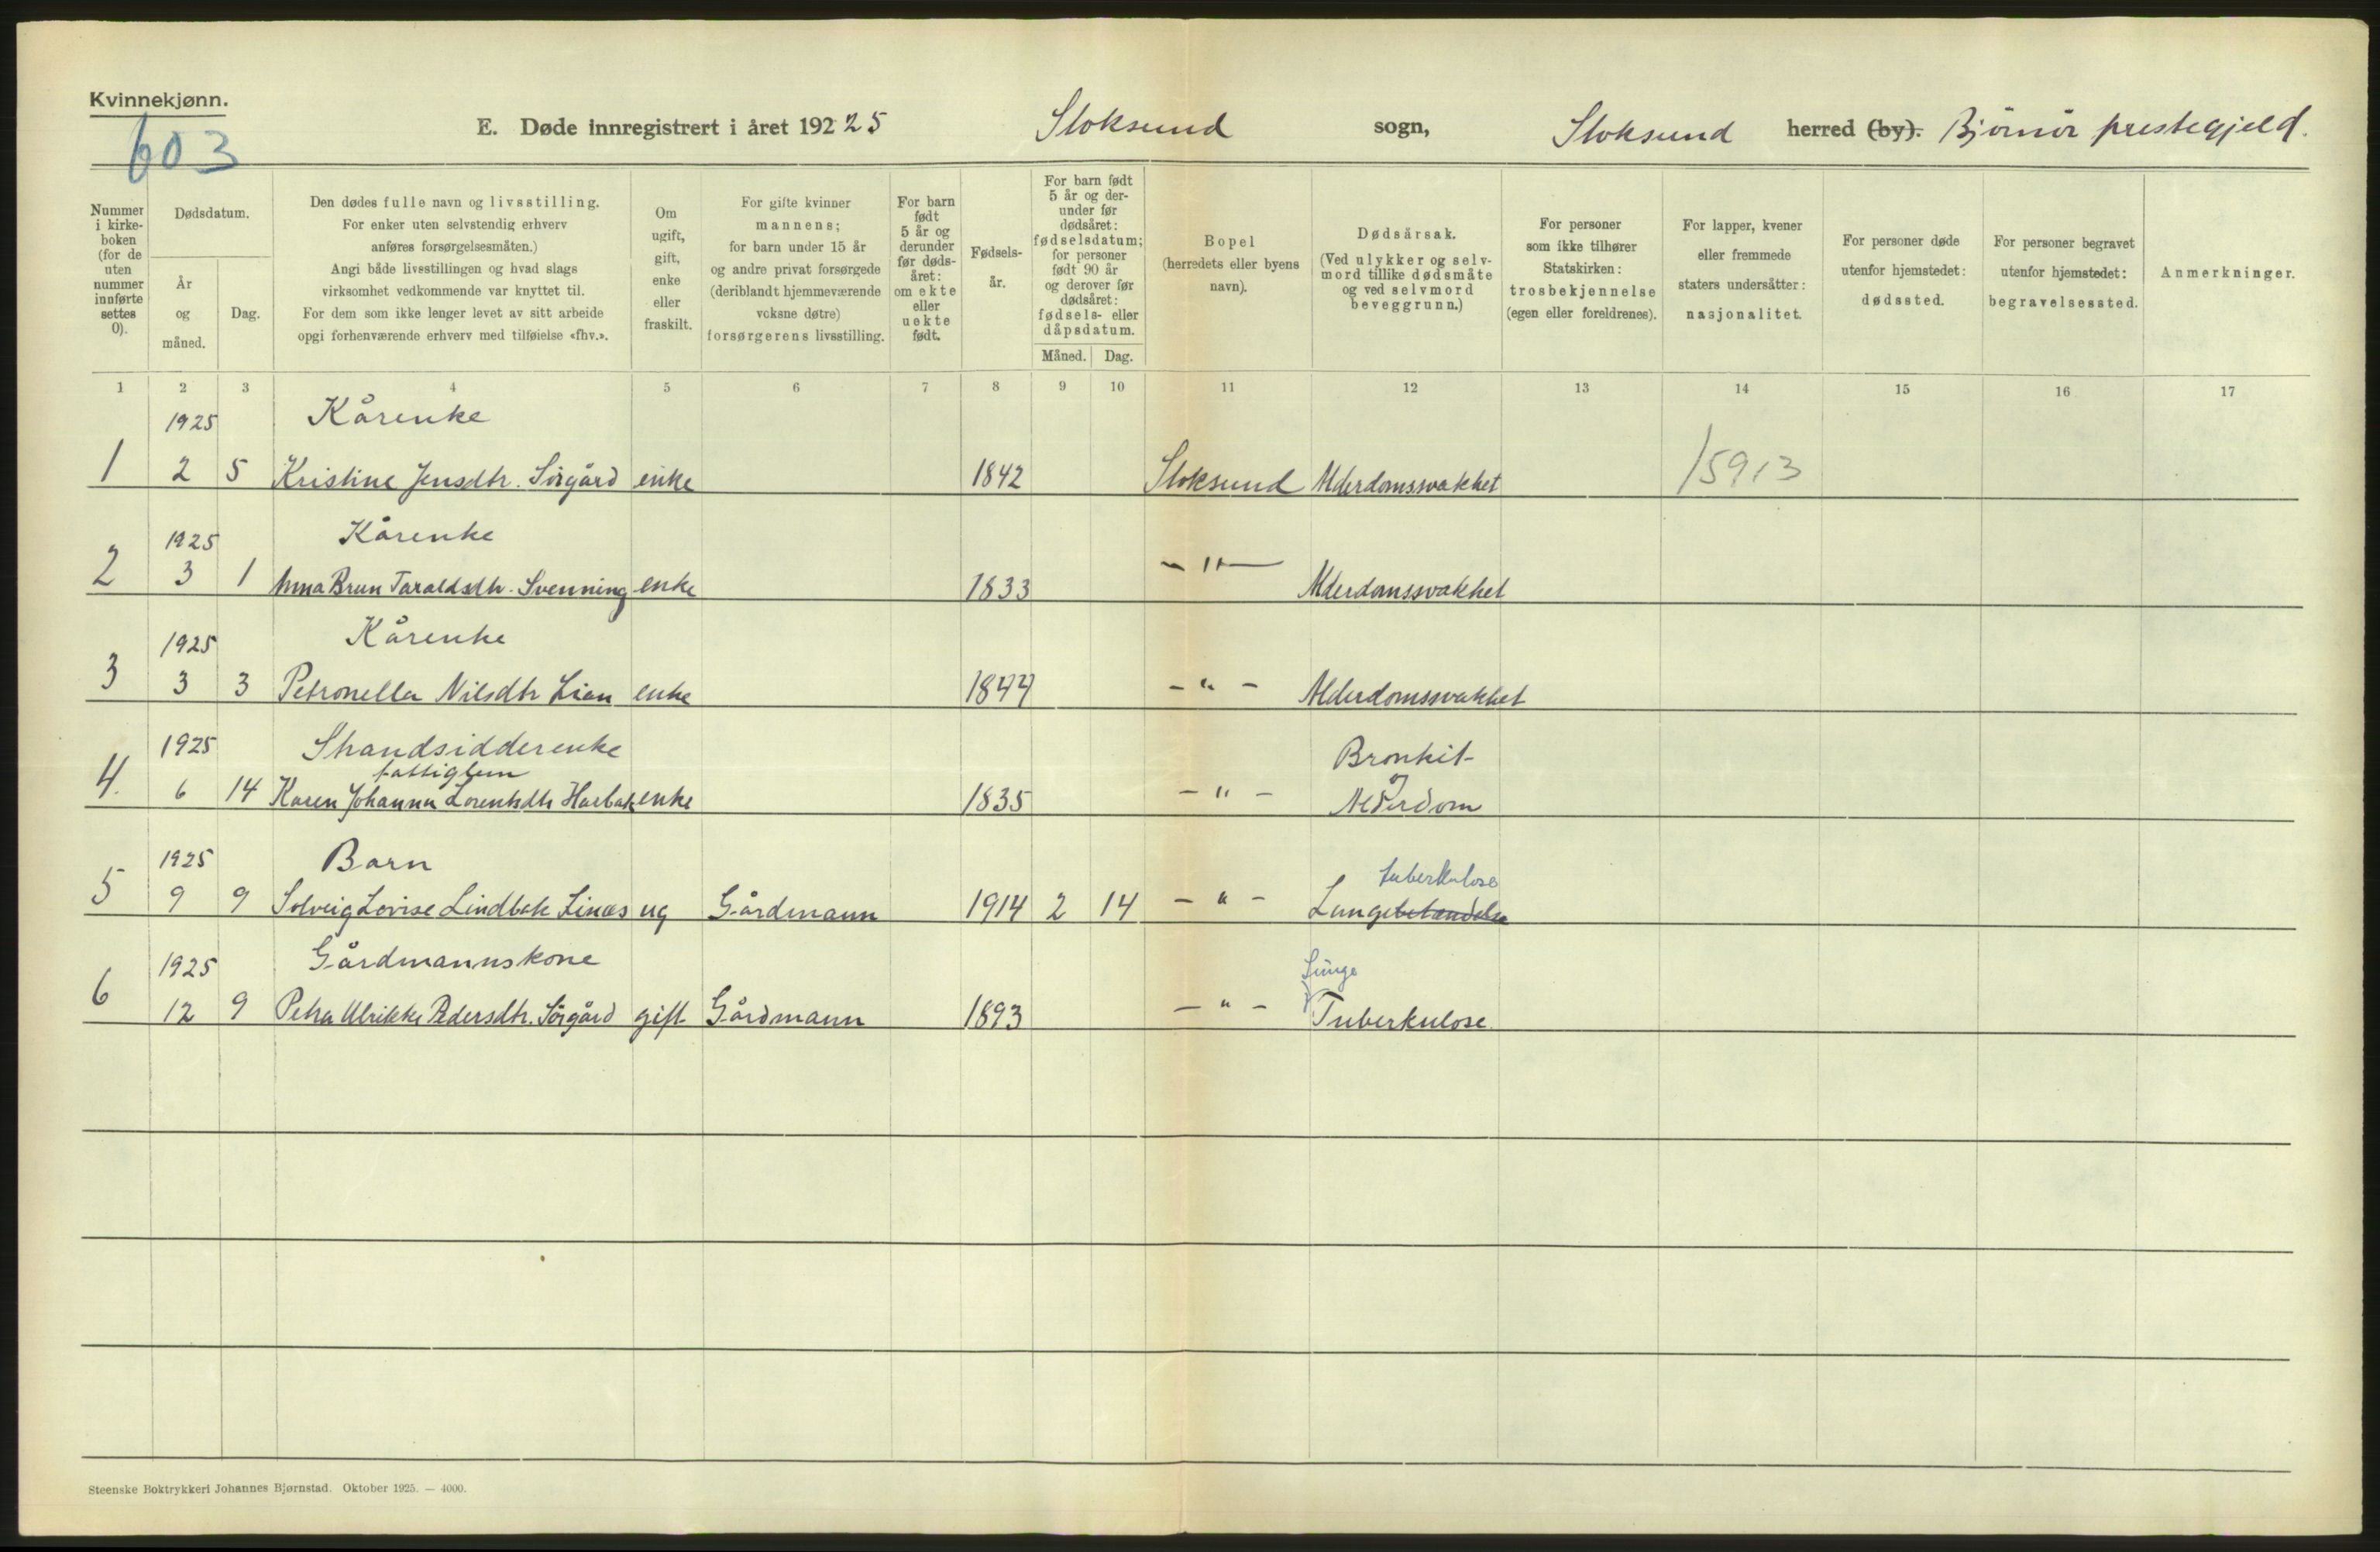 Kvinnekjønn.
603
E. Døde innregistrert i året 192 25 Stoksund sogn, Stoksund herred (by). Bjørnør prestegjeld.
Nummer i kirke-boken (for de uten nummer innførte settes 0).
Dødsdatum.
År og måned.
Dag.
Den dødes fulle navn og livsstilling.
For enker uten selvstendig erhverv
anføres forsørgelsesmåten.)
Angi både livsstillingen og hvad slags
virksomhet vedkommende var knyttet til.
For dem som ikke lenger levet av sitt arbeide
opgi forhenværende erhverv med tilføielse «fhv.».
Om ugift, gift, enke eller fraskilt.
For gifte kvinner
mannens;
for barn under 15 år
og andre privat forsørgede
(deriblandt hjemmeværende
voksne døtre)
forsørgerens livsstilling.
For barn født 5 år og derunder før døds-året: om ekte eller uekte født.
Fødsels-år.
For barn født
5 år og der-
under før
dødsåret:
fødselsdatum;
for personer
født 90 år
og derover før
dødsåret:
fødsels- eller
dåpsdatum.
Måned. Dag.
Bopel
(herredets eller byens
navn).
Dødsårsak.
(Ved ulykker og selv-
mord tillike dødsmåte
og ved selvmord
beveggrunn.)
For personer
som ikke tilhører
Statskirken:
trosbekjennelse
(egen eller foreldrenes).
For lapper, kvener
eller fremmede
staters undersåtter:
nasjonalitet.
For personer døde
utenfor hjemstedet:
dødssted.
For personer begravet
utenfor hjemstedet:
begravelsessted.
Anmerkninger.
1 2 3 4 5 6 7 8 9 10 11 12 13 14 15 16 17
1925 Kårenke
1 2 5 Kristine Jensdtr. Sørgård enke 1842 Stoksund Alderdomssvakhet 15913
1925 Kårenke
2 3 1 Anna Brun Taraldsdtr. Svenning enke 1833 - " - Alderdomssvakhet
1925 Kårenke
3 3 3 Petronella Nilsdtr Lian enke 1844 - " - Alderdomssvakhet
1925 Strandsidderenke Bronkit
fattiglem og
4. 6 14 Karen Johanna Lorentsdtr Harbak enke 1835 - " - Alderdom
1925 Barn tuberkulose
5 9 9 Solveig Lovise Lindbak Linæs ug Gårdmann 1914 2 14 - " - Lungebetændelse
1925 Gårdmannskone Lunge
6 12 9 Petra Ulrikke Pedersdtr. Sørgård gift Gårdmann 1893 - " - Tuberkulose
Steenske Boktrykkeri Johannes Bjørnstad. Oktober 1925. — 4000.